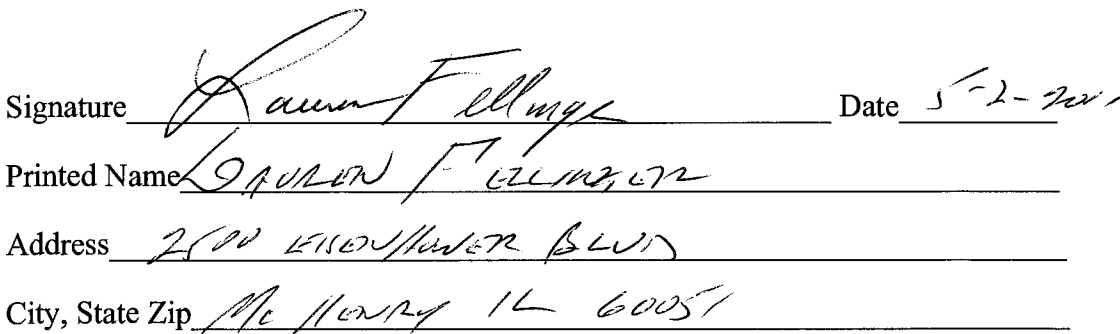 Signature Lauren Fellinger Date 5-2-
Printed Name LAUREN FELLINGER
Address 2500 EISENHOWER BLVD
City, State Zip Mc HENRY IL 60051